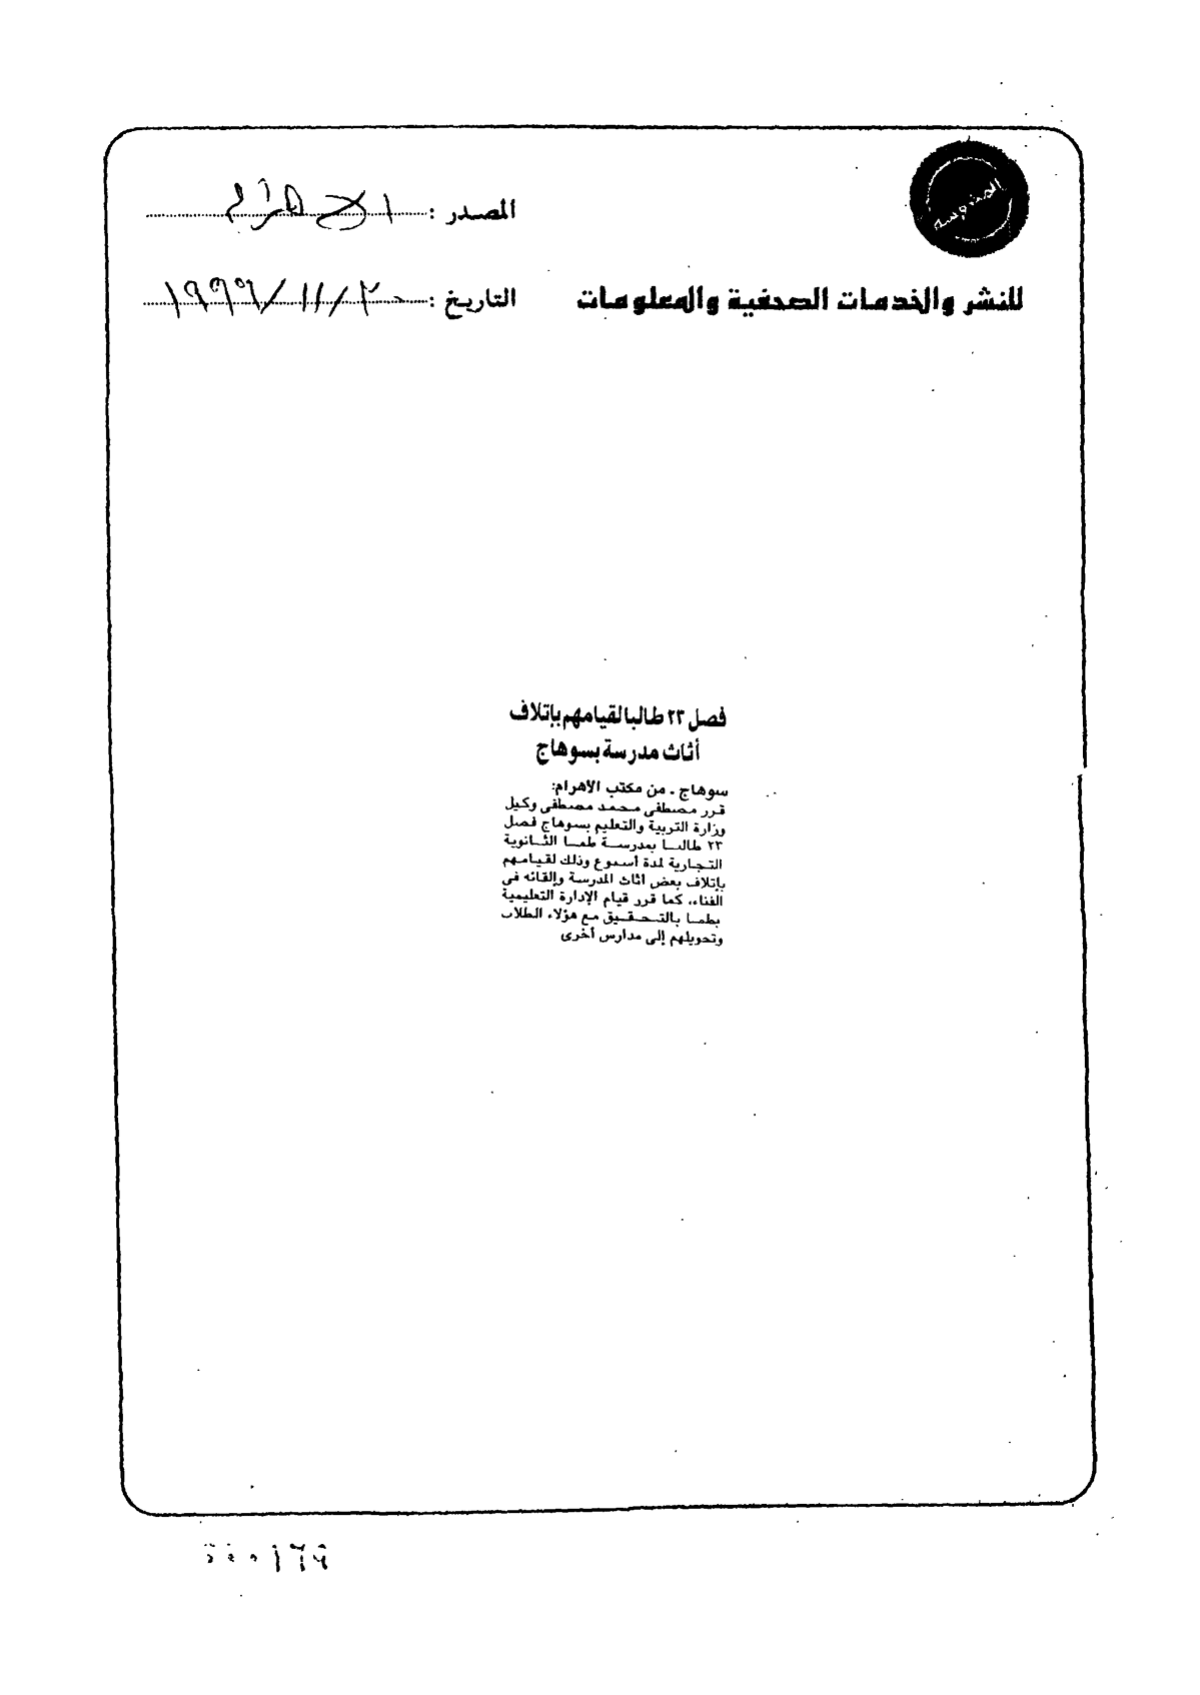 المحروسة
المصدر : الأهرام
للنشر والخدمات الصحفية والمعلومات
التاريخ : ٢٠ / ١١ / ١٩٩٩
فصل ٢٣ طالبا لقيامهم بإتلاف
أثاث مدرسة بسوهاج
سوهاج . من مكتب الأهرام:
قرر مصطفى محمد مصطفى وكيل
وزارة التربية والتعليم بسوهاج فصل
٢٣ طالبا بمدرسة طما الثانوية
التجارية لمدة أسبوع وذلك لقيامهم
بإتلاف بعض أثاث المدرسة وإلقائه فى
الفناء، كما قرر قيام الإدارة التعليمية
بطما بالتحقيق مع هؤلاء الطلاب
وتحويلهم إلى مدارس أخرى